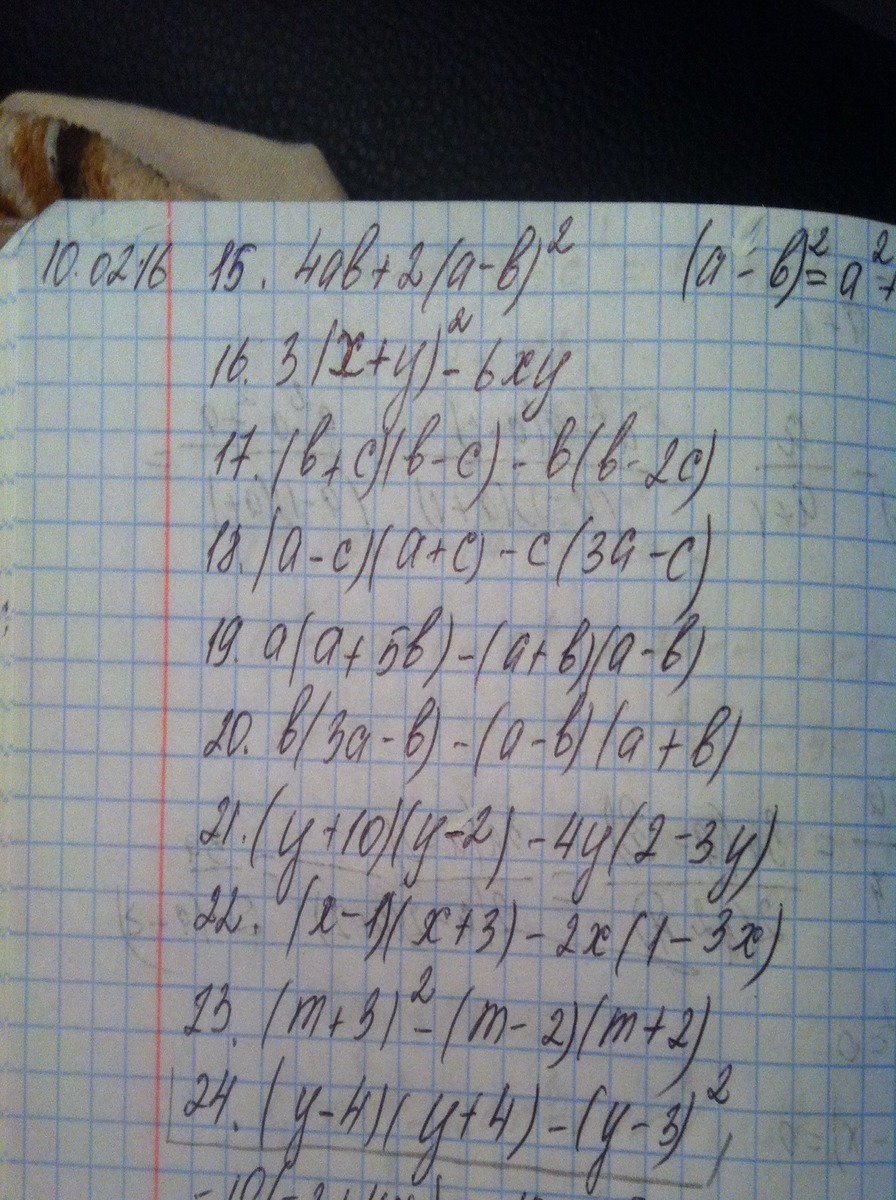 10.02.16 15. 4ab+2(a-b)² (a-b)²=a²+
16. 3(x+y)²-6xy
17. (b+c)(b-c)-b(b-2c)
18. (a-c)(a+c)-c(3a-c)
19. a(a+5b)-(a+b)(a-b)
20. b(3a-b)-(a-b)(a+b)
21. (y+10)(y-2)-4y(2-3y)
22. (x-1)(x+3)-2x(1-3x)
23. (m+3)²-(m-2)(m+2)
24. (y-4)(y+4)-(y-3)²